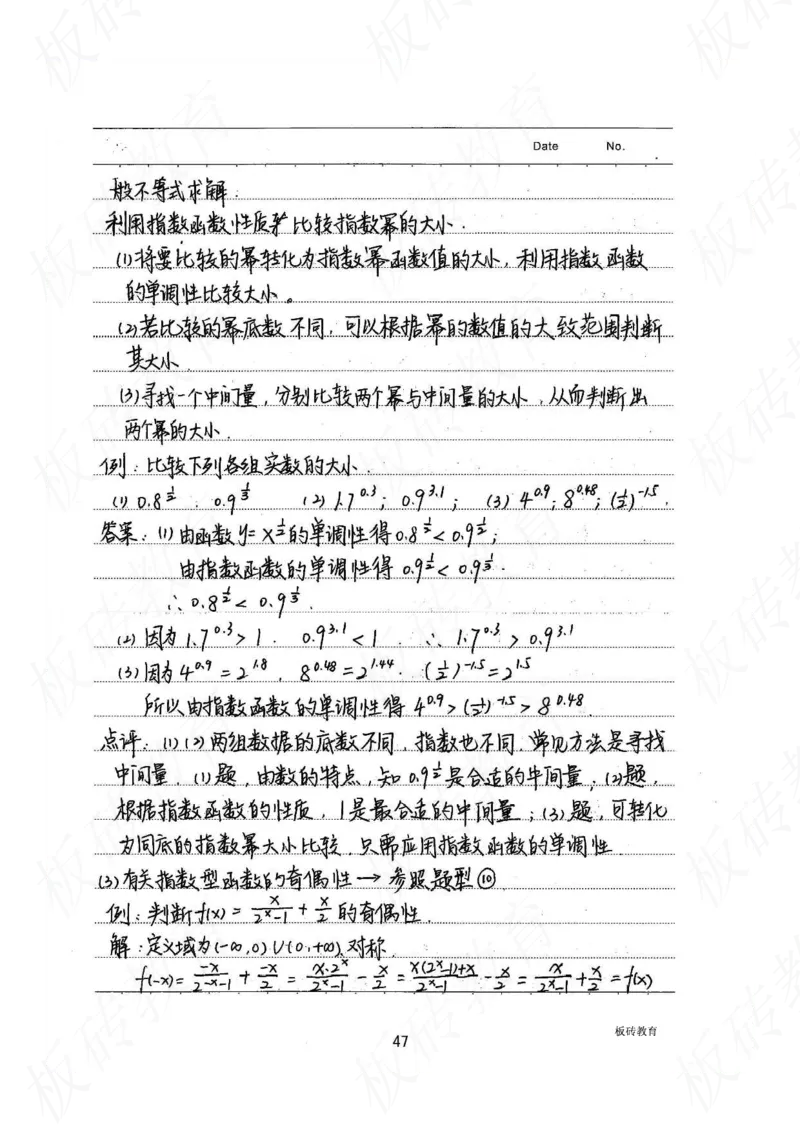 Date No.
般不等式求解:
利用指数函数性质来比较指数幂的大小.
(1)将要比较的幂转化为指数幂函数值的大小,利用指数函数
的单调性比较大小。
(2)若比较的幂底数不同,可以根据幂的数值的大致范围判断
其大小.
(3)寻找一个中间量,分别比较两个幂与中间量的大小,从而判断出
两个幂的大小.
例:比较下列各组实数的大小.
(1) 0.8^{1/2}, 0.9^{1/3} (2) 1.7^{0.3}; 0.9^{3.1}; (3) 4^{0.9}; 8^{0.48}; (1/2)^{-1.5}.
答案:(1)由函数y=x^{1/2}的单调性得0.8^{1/2}<0.9^{1/2};
由指数函数的单调性得 0.9^{1/2}<0.9^{1/3}.
∴0.8^{1/2}<0.9^{1/3}.
(2)因为1.7^{0.3}>1. 0.9^{3.1}<1. ∴1.7^{0.3}>0.9^{3.1}
(3)因为4^{0.9}=2^{1.8}, 8^{0.48}=2^{1.44}. (1/2)^{-1.5}=2^{1.5}
所以由指数函数的单调性得 4^{0.9}>(1/2)^{-1.5}>8^{0.48}.
点评:(1)(2)两组数据的底数不同,指数也不同.常见方法是寻找
中间量.(1)题,由数的特点,知0.9^{1/2}是合适的中间量;(2)题,
根据指数函数的性质,1是最合适的中间量;(3)题,可转化
为同底的指数幂大小比较,只需应用指数函数的单调性.
(3)有关指数型函数的奇偶性→参照题型⑩
例:判断f(x)=x/(2^x-1)+x/2的奇偶性.
解:定义域为(-∞,0)∪(0,+∞),对称.
f(-x)=-x/(2^{-x}-1)+-x/2=x·2^x/(2^x-1)-x/2=x(2^x-1)+x/(2^x-1)-x/2=x/(2^x-1)+x/2=f(x)
47
板砖教育